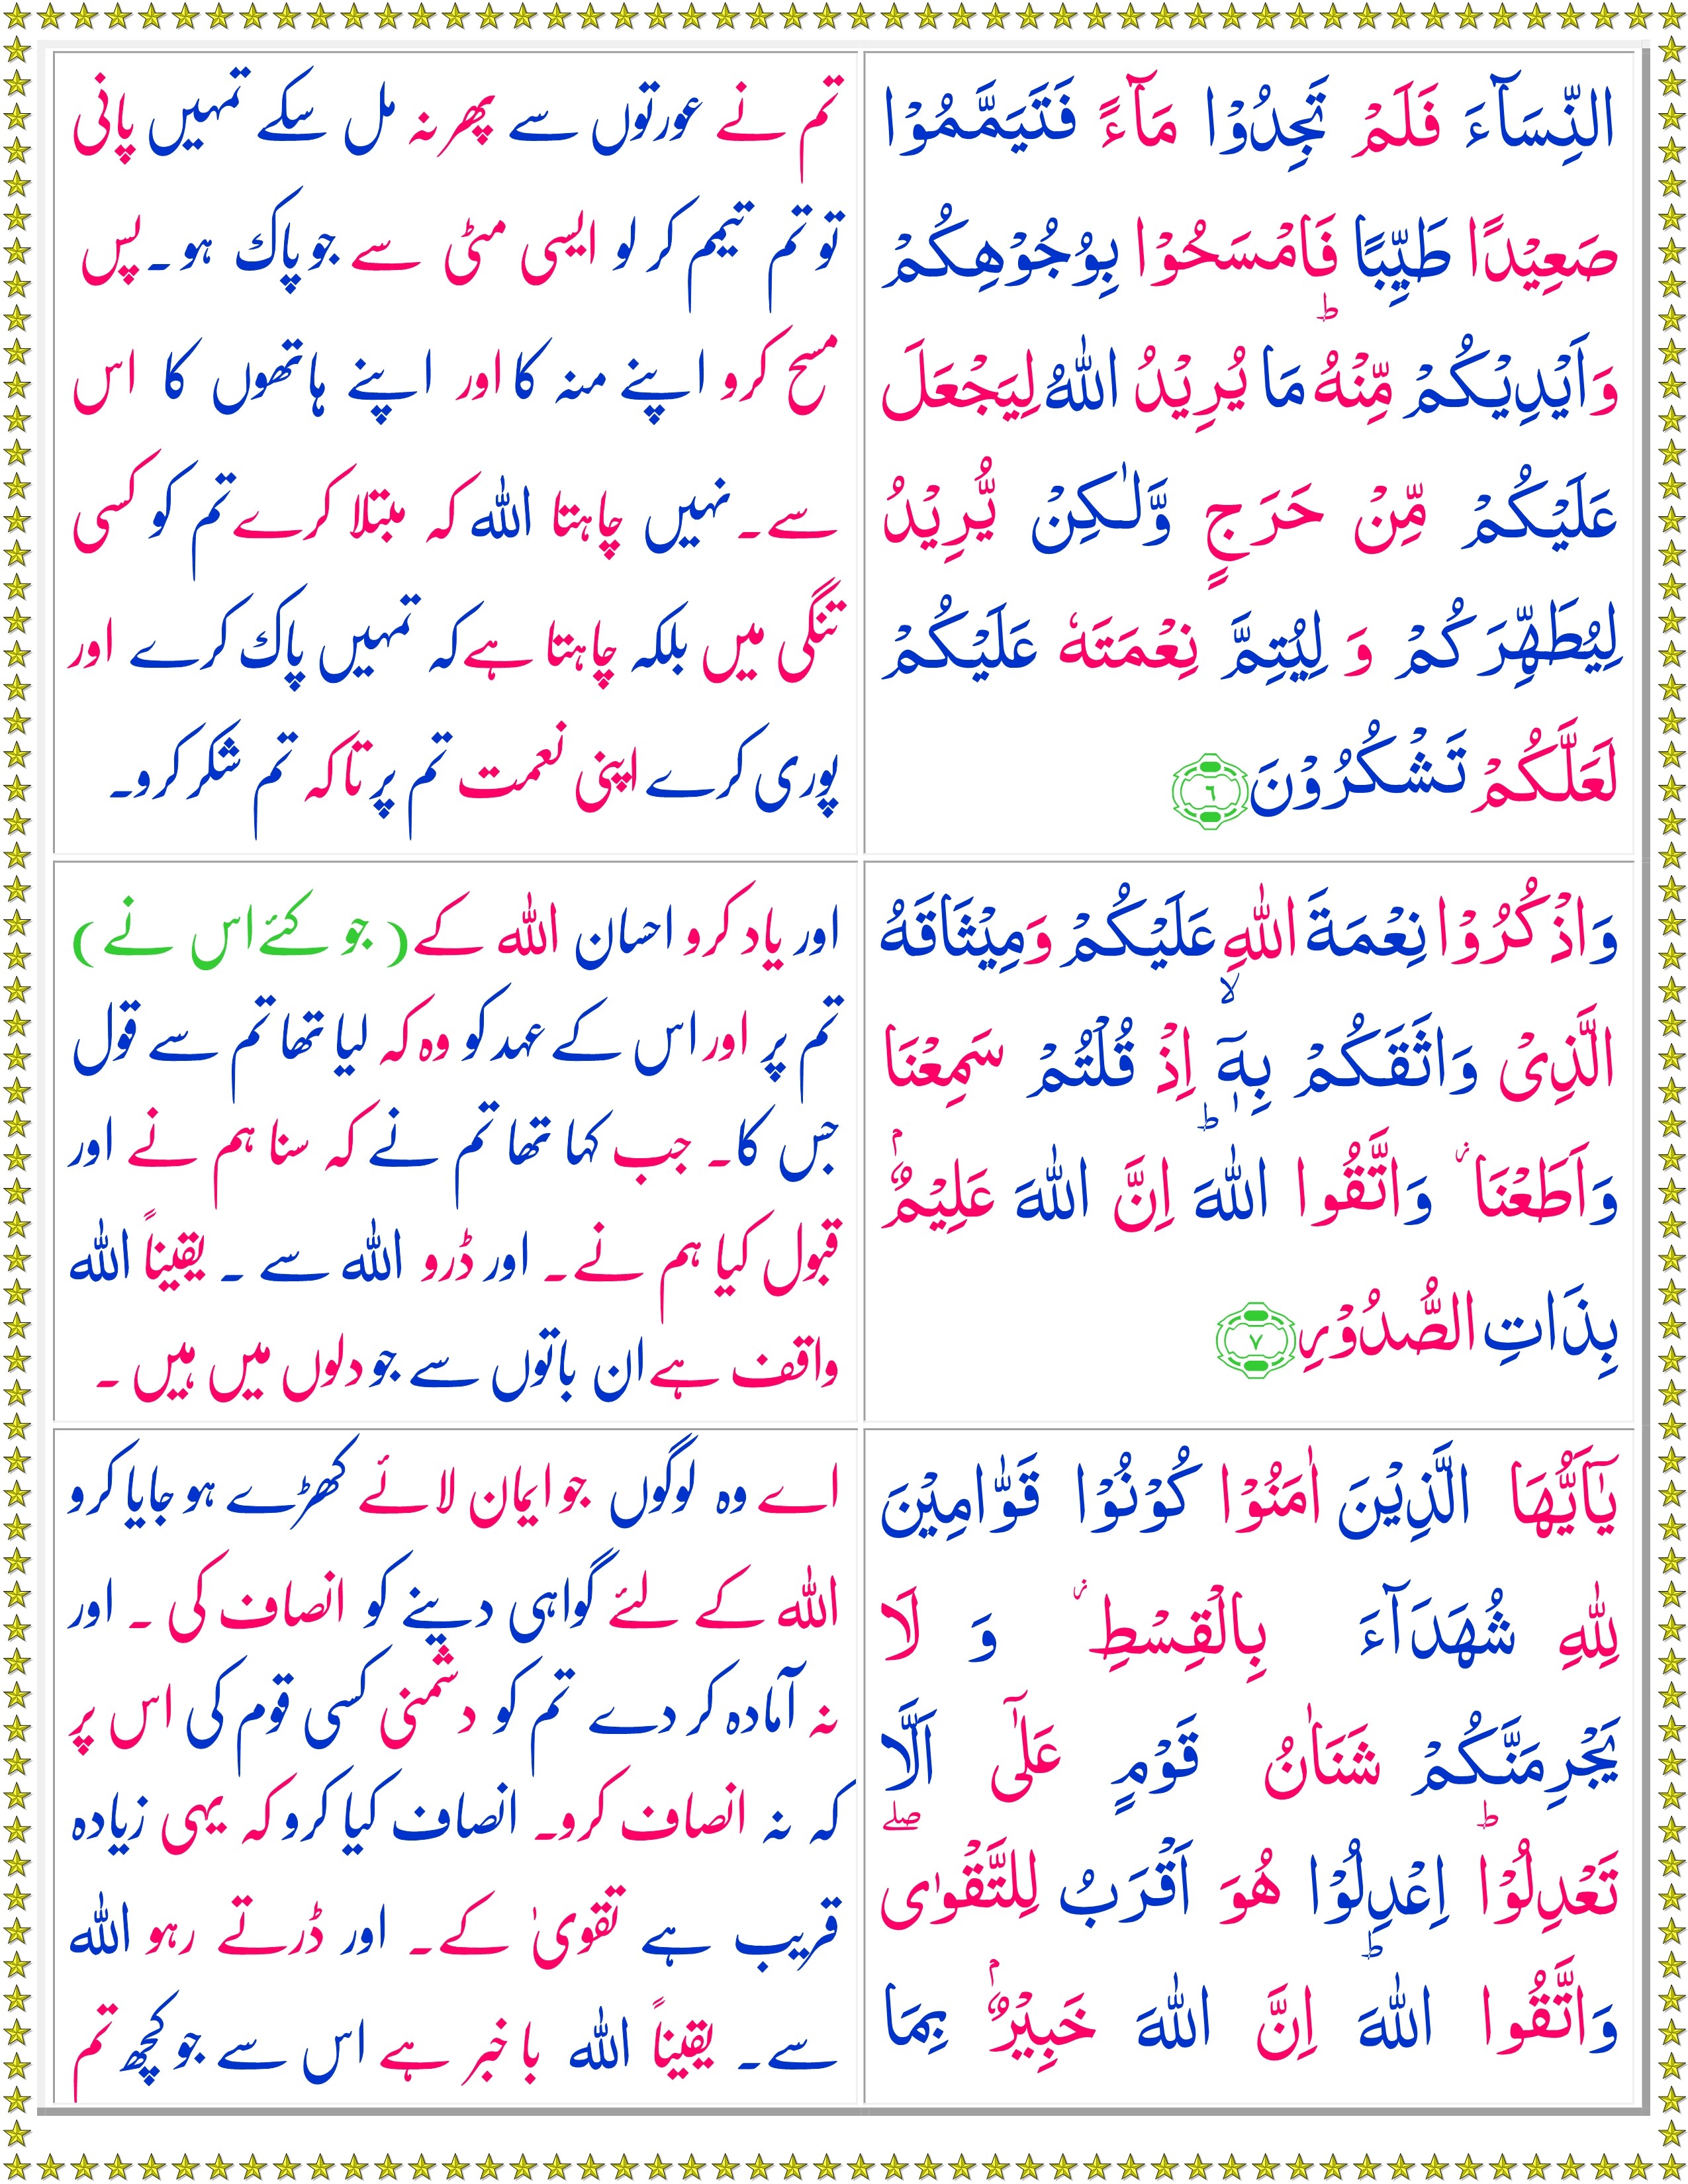 النِّسَآءَ فَلَمْ تَجِدُوْا مَآءً فَتَيَمَّمُوْا
صَعِيْدًا طَيِّبًا فَامْسَحُوْا بِوُجُوْهِكُمْ
وَاَيْدِيْكُمْ مِّنْهُ ؕ مَا يُرِيْدُ اللّٰهُ لِيَجْعَلَ
عَلَيْكُمْ مِّنْ حَرَجٍ وَّلٰكِنْ يُّرِيْدُ
لِيُطَهِّرَكُمْ وَ لِيُتِمَّ نِعْمَتَهٗ عَلَيْكُمْ
لَعَلَّكُمْ تَشْكُرُوْنَ ٦
تم نے عورتوں سے پھر نہ مل سکے تمہیں پانی
تو تم تیمم کر لو ایسی مٹی سے جو پاک ہو۔ پس
مسح کرو اپنے منہ کا اور اپنے ہاتھوں کا اس
سے۔ نہیں چاہتا اللہ کہ مبتلا کرے تم کو کسی
تنگی میں بلکہ چاہتا ہے کہ تمہیں پاک کرے اور
پوری کرے اپنی نعمت تم پر تاکہ تم شکر کرو۔
وَاذْكُرُوْا نِعْمَةَ اللّٰهِ عَلَيْكُمْ وَمِيْثَاقَهُ
الَّذِىْ وَاثَقَكُمْ بِهٖۤ ۙ اِذْ قُلْتُمْ سَمِعْنَا
وَاَطَعْنَا ۡ وَاتَّقُوا اللّٰهَ ؕ اِنَّ اللّٰهَ عَلِيْمٌۢ
بِذَاتِ الصُّدُوْرِ ٧
اور یاد کرو احسان اللہ کے ( جو کئے اس نے )
تم پر اور اس کے عہد کو وہ کہ لیا تھا تم سے قول
جس کا۔ جب کہا تھا تم نے کہ سنا ہم نے اور
قبول کیا ہم نے۔ اور ڈرو اللہ سے ۔ یقیناً اللہ
واقف ہے ان باتوں سے جو دلوں میں ہیں ۔
يٰۤاَيُّهَا الَّذِيْنَ اٰمَنُوْا كُوْنُوْا قَوَّامِيْنَ
لِلّٰهِ شُهَدَآءَ بِالْقِسْطِ ۡ وَ لَا
يَجْرِمَنَّكُمْ شَنَاٰنُ قَوْمٍ عَلٰٓى اَلَّا
تَعْدِلُوْا ؕ اِعْدِلُوْا هُوَ اَقْرَبُ لِلتَّقْوٰى ۖ
وَاتَّقُوا اللّٰهَ ؕ اِنَّ اللّٰهَ خَبِيْرٌۢ بِمَا
اے وہ لوگوں جو ایمان لائے کھڑے ہو جایا کرو
اللہ کے لئے گواہی دینے کو انصاف کی ۔ اور
نہ آمادہ کر دے تم کو دشمنی کسی قوم کی اس پر
کہ نہ انصاف کرو۔ انصاف کیا کرو کہ یہی زیادہ
قریب ہے تقویٰ کے۔ اور ڈرتے رہو اللہ
سے۔ یقیناً اللہ با خبر ہے اس سے جو کچھ تم